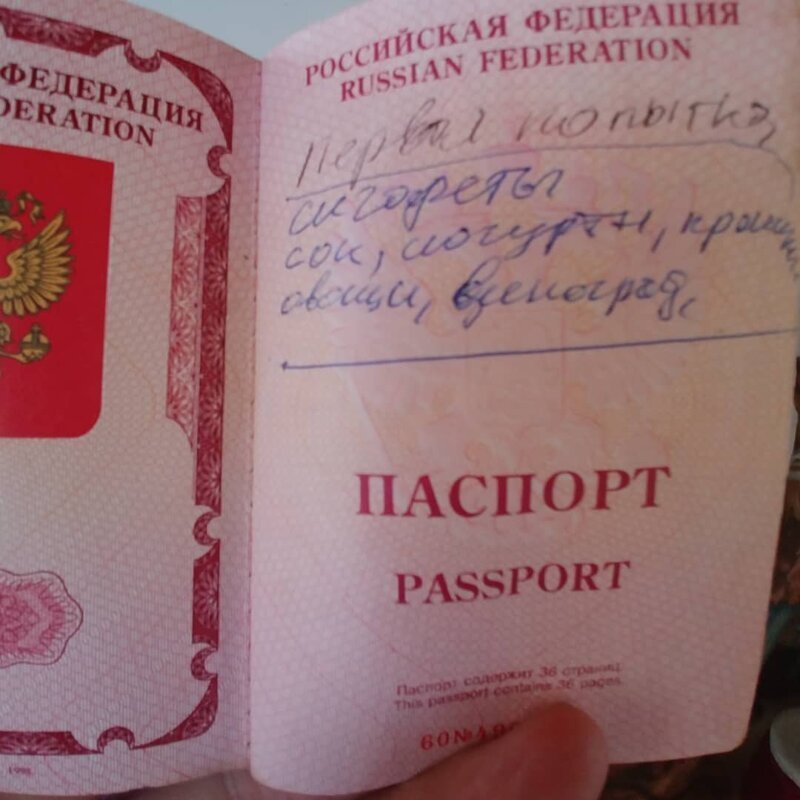 ФЕДЕРАЦИЯ
DERATION
1998
РОССИЙСКАЯ ФЕДЕРАЦИЯ
RUSSIAN FEDERATION
Первая попытка,
сигареты
сок, йогурты,
овощи, виноград,
ПАСПОРТ
PASSPORT
Паспорт содержит 36 страниц.
This passport contains 36 pages.
60№